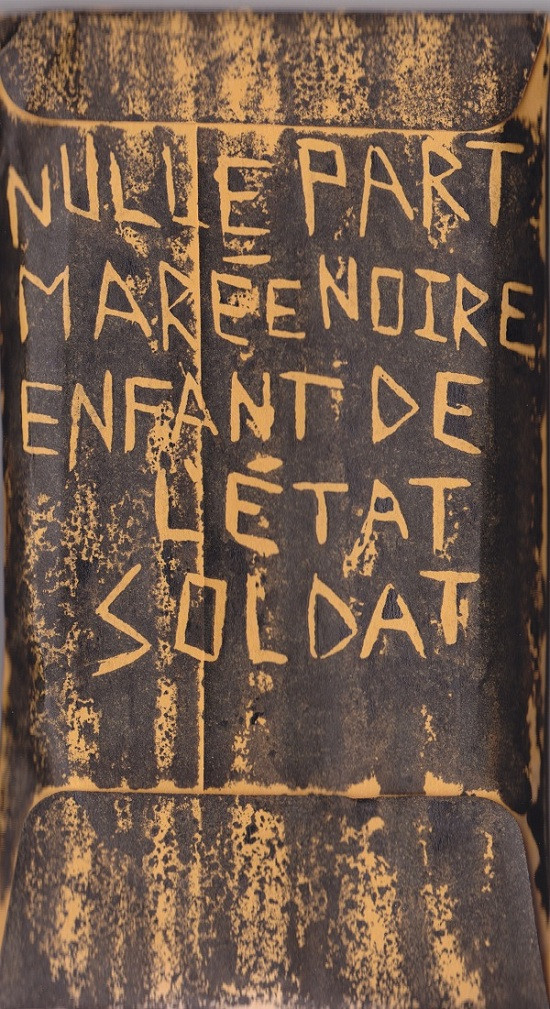 NULLE PART
MARÉE NOIRE
ENFANT DE
L'ÉTAT
SOLDAT